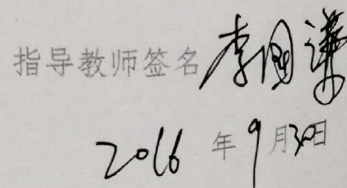 指导教师签名 李国谦
2016 年 9 月 30日